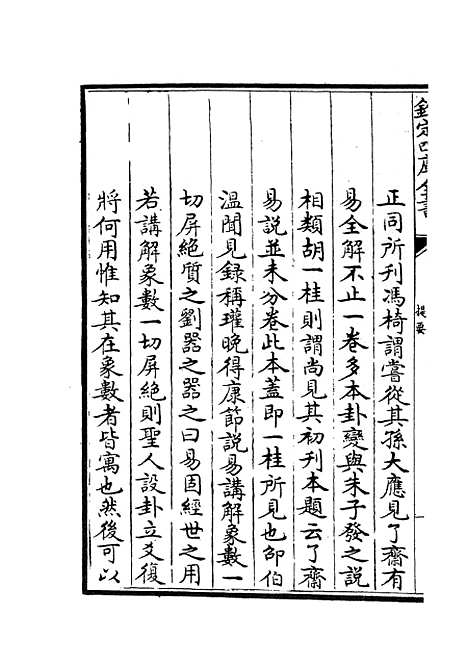 欽定四庫全書
提要
正同所刊馮椅謂嘗從其孫大應見了齋有
易全解不止一卷多本卦變與朱子發之說
相類胡一桂則謂尚見其初刊本題云了齋
易說並未分卷此本蓋即一桂所見也邵伯
溫聞見録稱瓘晚得康節說易講解象數一
切屏絶質之劉器之器之曰易固經世之用
若講解象數一切屏絶則聖人設卦立爻復
將何用惟知其在象數者皆寓也然後可以